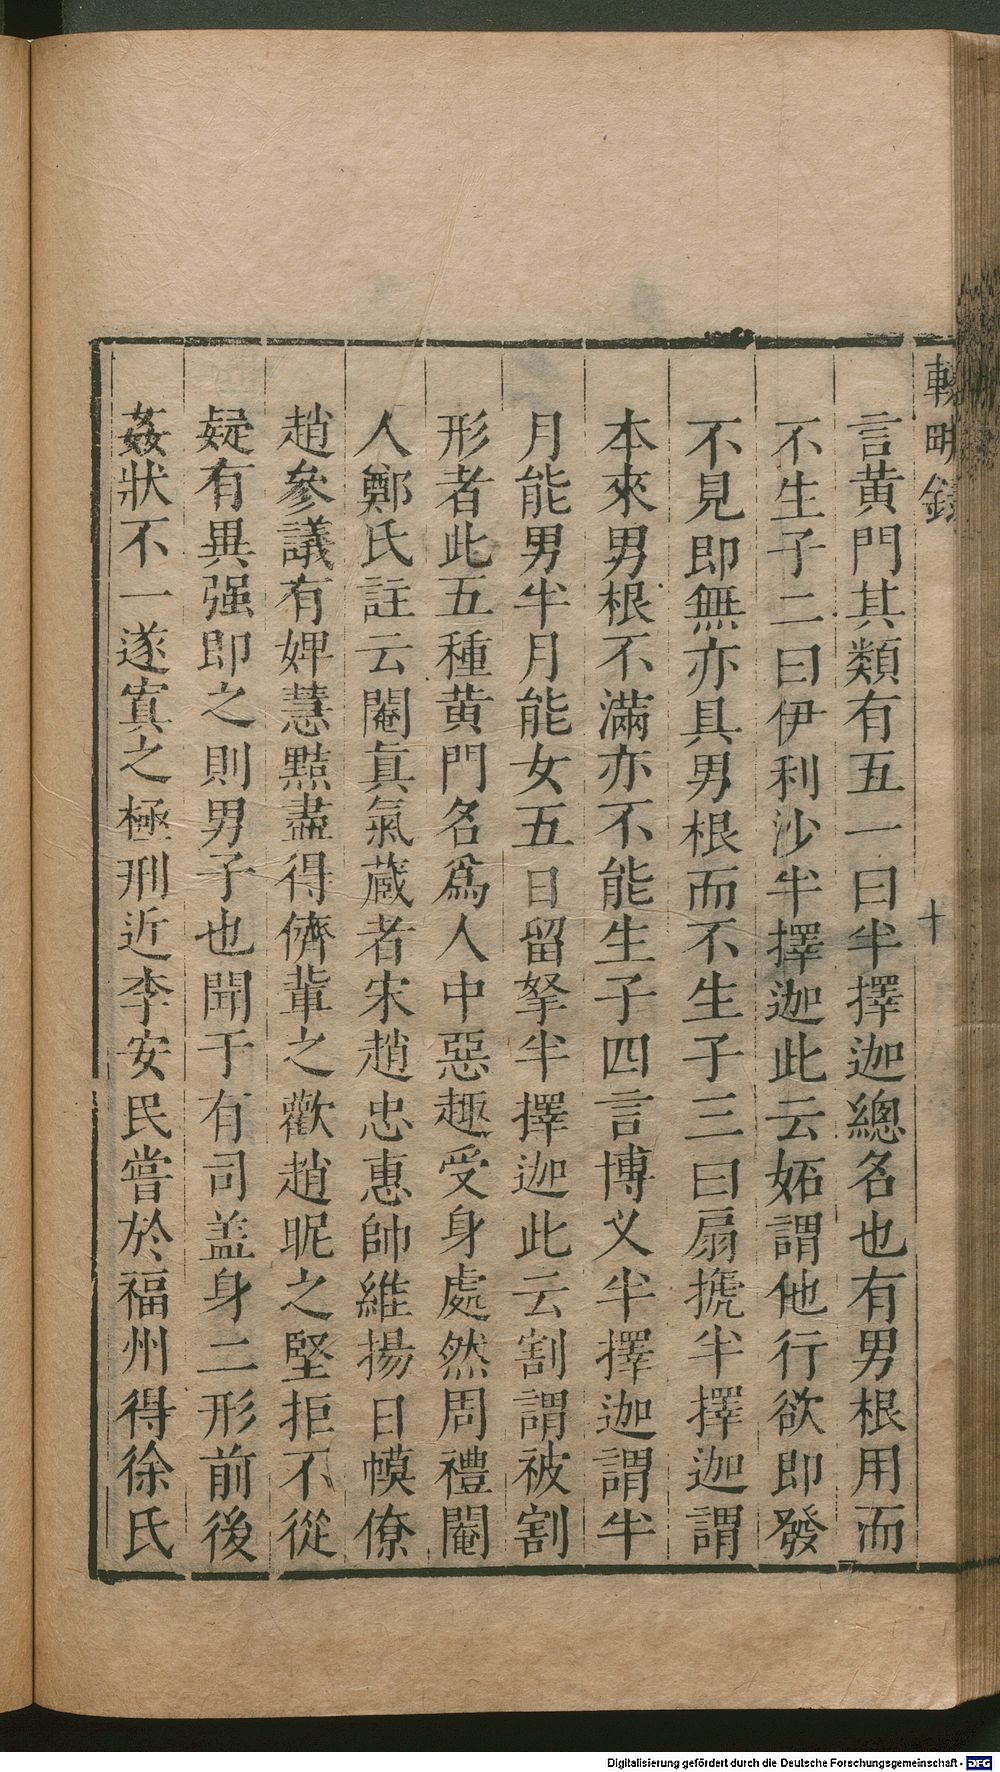 輟畊錄
十
言黄門其類有五一曰半擇迦總名也有男根用而
不生子二曰伊利沙半擇迦此云妬謂他行欲即發
不見即無亦具男根而不生子三曰扇搋半擇迦謂
本來男根不滿亦不能生子四言博义半擇迦謂半
月能男半月能女五曰留拏半擇迦此云割謂被割
形者此五種黄門名爲人中惡趣受身處然周禮閹
人鄭氏註云閹真氣蔵者宋趙忠惠帥維揚日幙僚
趙參議有婢慧黠盡得儕輩之歡趙昵之堅拒不從
疑有異强即之則男子也聞于有司盖身二形前後
姦狀不一遂寘之極刑近李安民嘗於福州得徐氏
Digitalisierung gefördert durch die Deutsche Forschungsgemeinschaft - DFG